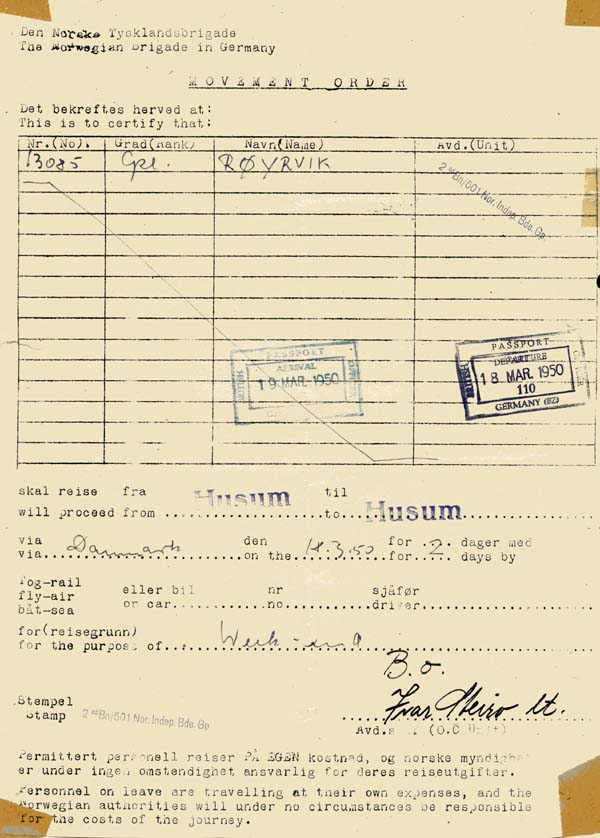 Den Norske Tysklandsbrigade
The Norwegian Brigade in Germany
MOVEMENT ORDER
Det bekreftes herved at:
This is to certify that:
Nr.(No). Grad(Rank) Navn(Name) Avd.(Unit)
13085 Gre. RØYRVIK
2 nd Bn/601 Nor. Indep. Bde. Gp
PASSPORT
ARRIVAL
BRITISH
19 MAR 1950
PASSPORT
DEPARTURE
BRITISH
18 MAR. 1950
110
GERMANY (BZ)
skal reise fra Husum til Husum
will proceed from ........ to ........
via Danmark den 18.3.50 for 2 dager med
via ........ on the ........ for .... days by
Tog-rail
fly-air eller bil nr sjåfør
båt-sea or car ........ no ........ driver ........
for(reisegrunn) Week-end
for the purpose of ........
B.o.
Ivar lt.
Stempel
Stamp 2 nd Bn/601 Nor. Indep. Bde. Gp
Avd.sjef (O.C Unit)
Permittert personell reiser PÅ EGEN kostnad, og norske myndighet
er under ingen omstendighet ansvarlig for deres reiseutgifter.
Personnel on leave are travelling at their own expenses, and the
Norwegian authorities will under no circumstances be responsible
for the costs of the journey.